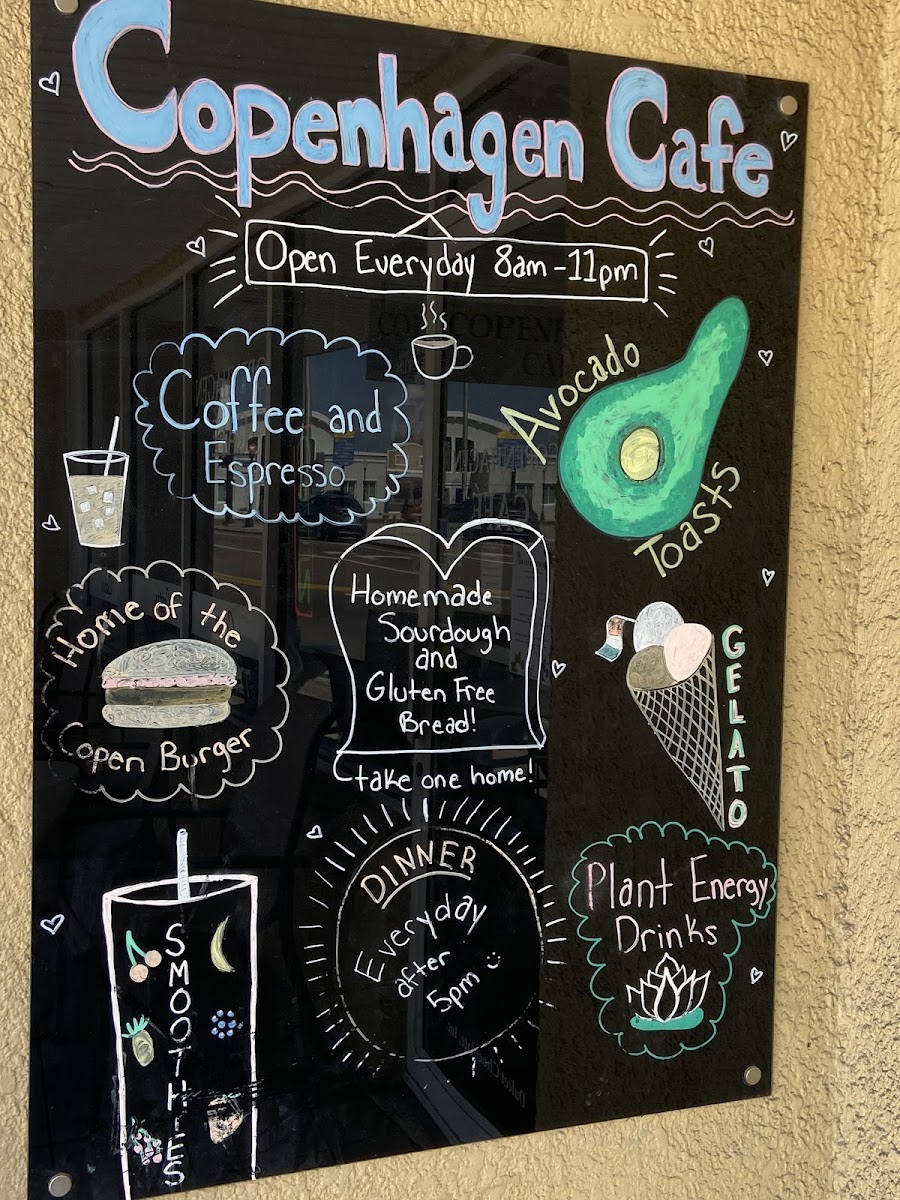 Copenhagen Cafe
Open Everyday 8am-11pm
Coffee and
Espresso
Avocado
Toasts
Home of the
Copen Burger
Homemade
Sourdough
and
Gluten Free
Bread!
take one home!
GELATO
SMOOTHIES
DINNER
Everyday
after
5pm
Plant Energy
Drinks